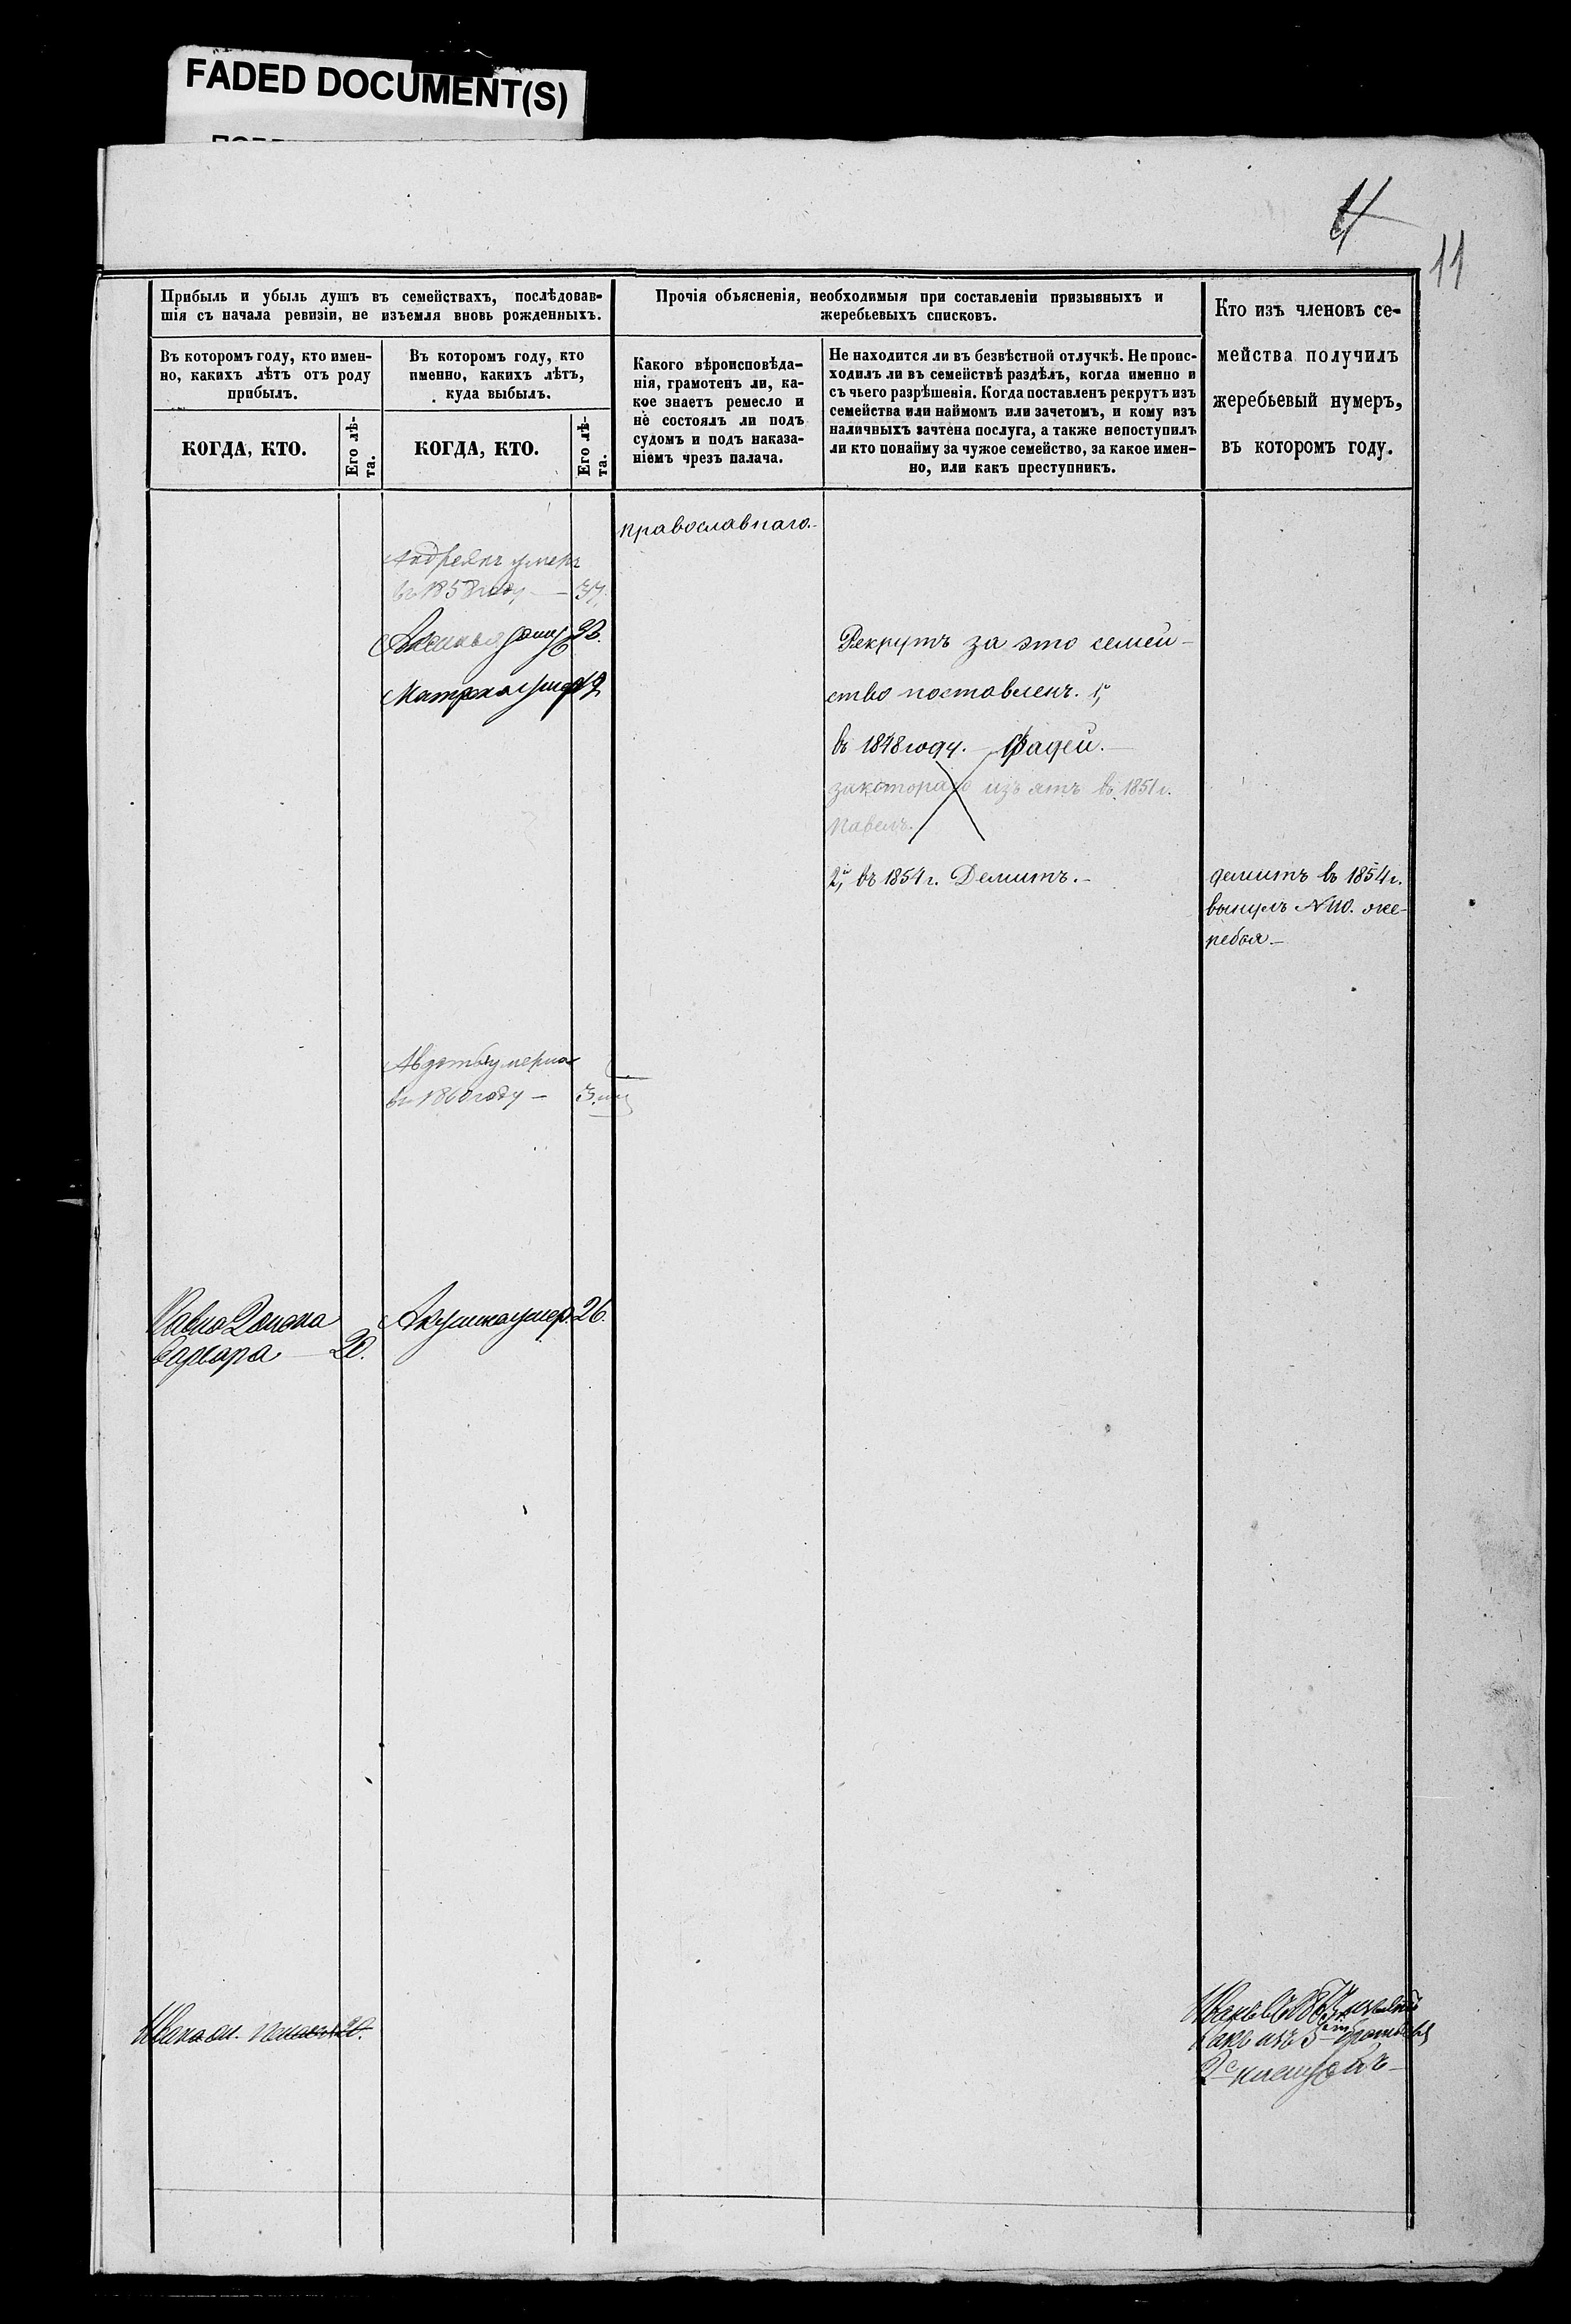 FADED DOCUMENT(S)
11
Прибыль и убыль душъ въ семействахъ, послѣдовав-
шія съ начала ревизіи, не изъемля вновь рожденныхъ.
Въ которомъ году, кто имен-
но, какихъ лѣтъ отъ роду
прибылъ.
КОГДА, КТО.
Его лѣ-
та.
Въ которомъ году, кто
именно, какихъ лѣтъ,
куда выбылъ.
КОГДА, КТО.
Его лѣ-
та.
Прочія объясненія, необходимыя при составленіи призывныхъ и
жеребьевыхъ списковъ.
Какого вѣроисповѣда-
нія, грамотенъ ли, ка-
кое знаетъ ремесло и
не состоялъ ли подъ
судомъ и подъ наказа-
ніемъ чрезъ палача.
Не находится ли въ безвѣстной отлучкѣ. Не проис-
ходилъ ли въ семействѣ раздѣлъ, когда именно и
съ чьего разрѣшенія. Когда поставленъ рекрутъ изъ
семейства или наймомъ или зачетомъ, и кому изъ
наличныхъ зачтена послуга, а также непоступилъ
ли кто понайму за чужое семейство, за какое имен-
но, или какъ преступникъ.
Кто изъ членовъ се-
мейства получилъ
жеребьевый нумеръ,
въ которомъ году.
православнаго.-
Андреянъ умеръ
въ 1858 году — 37.
Матрена умер
Рекрутъ за это семей-
ство поставленъ. 1,й
въ 1848 году. — Фадей. —
закотораго изъятъ въ 1851 г.
Павелъ.
2,й въ 1854 г. Демитъ. -
демитъ въ 1854 г.
вынулъ №110. же-
ребья. —
умерла
въ 1860 году — 3.
Павла Жена
Варвара — 20.
Акулина умер. 26.
Ивана 20.
Иванъ